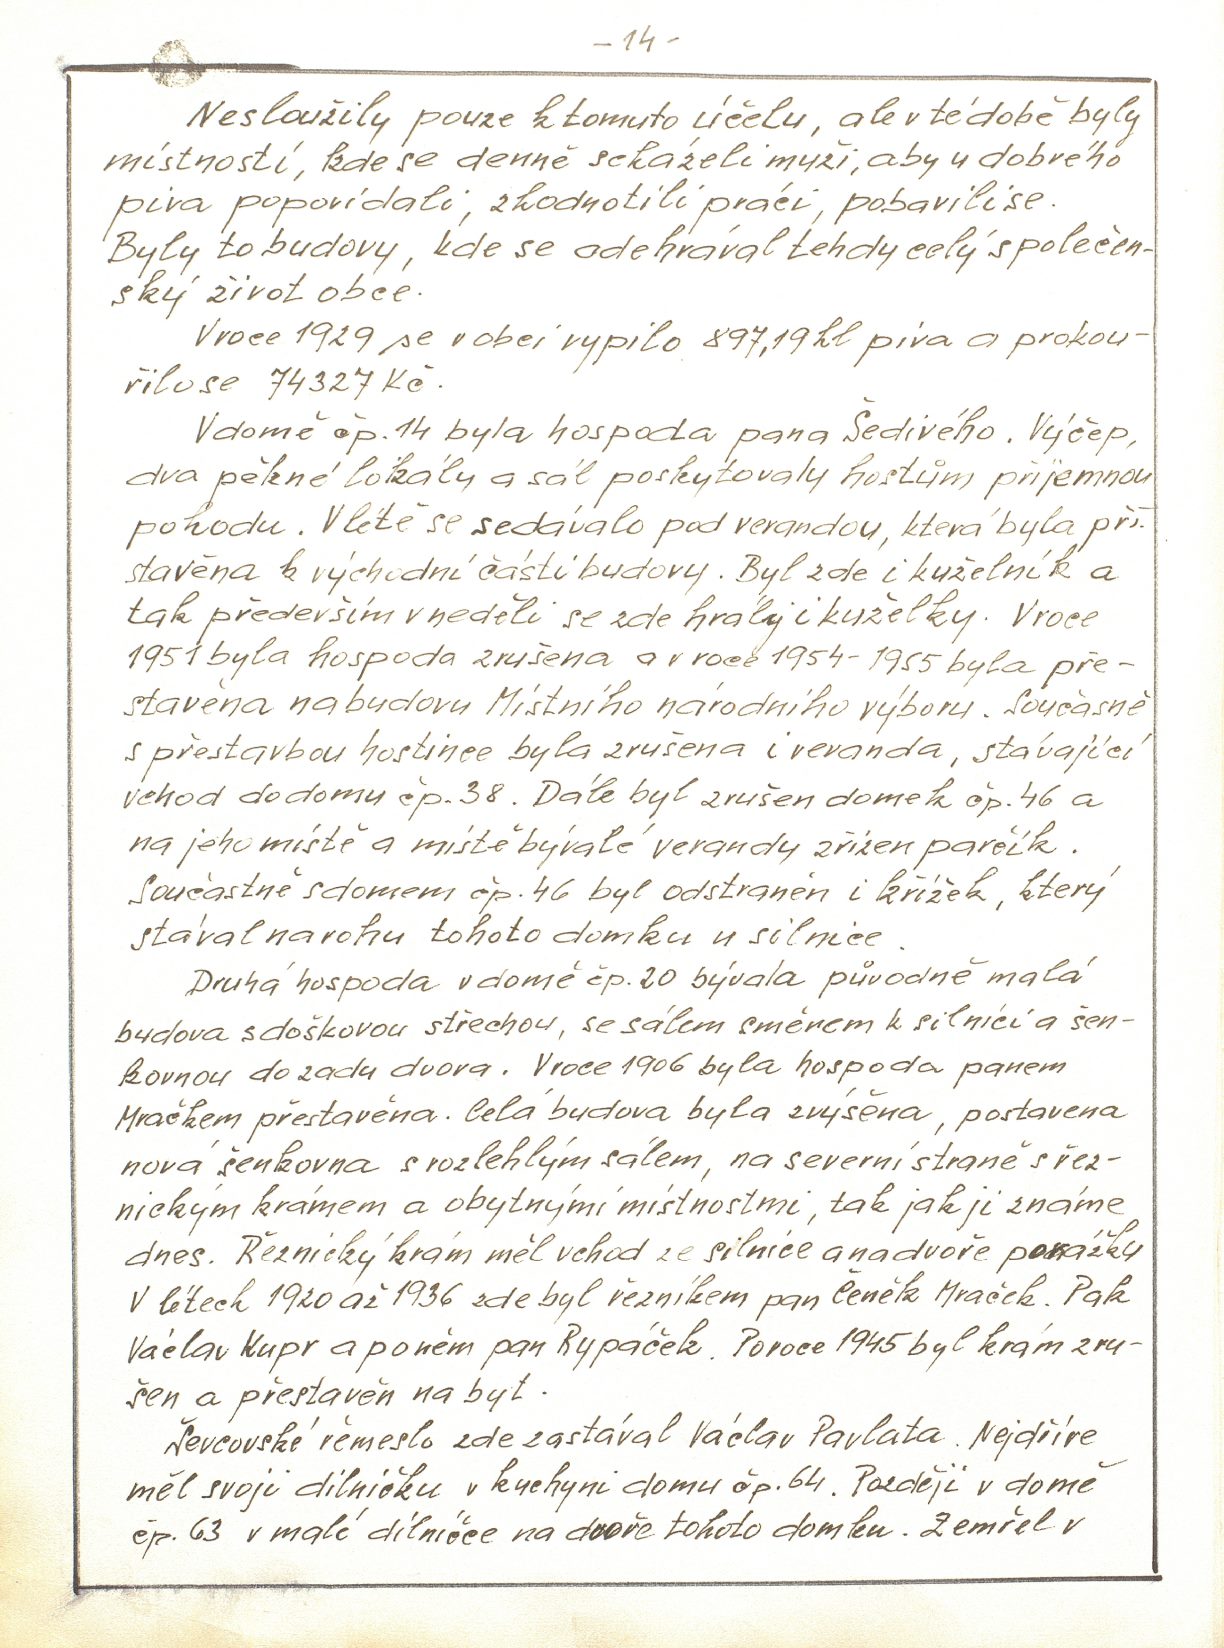 - 14 -
Nesloužily pouze k tomuto účelu, ale v té době byly
místností, kde se denně scházeli muži, aby u dobrého
piva popovídali, zhodnotili práci, pobavili se.
Byly to budovy, kde se odehrával tehdy celý společen-
ský život obce.
V roce 1929 se v obci vypilo 897,19 hl piva a prokou-
řilo se 74327 Kč.
V domě čp. 14 byla hospoda pana Šedivého. Výčep,
dva pěkné lokály a sál poskytovaly hostům příjemnou
pohodu. V létě se sedávalo pod verandou, která byla při-
stavěna k východní části budovy. Byl zde i kuželník a
tak především v neděli se zde hrály i kuželky. V roce
1951 byla hospoda zrušena a v roce 1954-1955 byla pře-
stavěna na budovu Místního národního výboru. Současně
s přestavbou hostince byla zrušena i veranda, stávající
vchod do domu čp. 38. Dále byl zrušen domek čp. 46 a
na jeho místě a místě bývalé verandy zřízen parčík.
Součastně s domem čp. 46 byl odstraněn i křížek, který
stával na rohu tohoto domku u silnice.
Druhá hospoda v domě čp. 20 bývala původně malá
budova s doškovou střechou, se sálem směrem k silnici a šen-
kovnou do zadu dvora. V roce 1906 byla hospoda panem
Mračkem přestavěna. Celá budova byla zvýšěna, postavena
nová šenkovna s rozlehlým sálem, na severní straně s řez-
nickým krámem a obytnými místnostmi, tak jak ji známe
dnes. Řeznický krám měl vchod ze silnice a na dvoře porážku
V létech 1920 až 1936 zde byl řezníkem pan Čeněk Mraček. Pak
Václav Kupr a po něm pan Rypáček. Po roce 1945 byl krám zru-
šen a přestavěn na byt.
Ševcovské řemeslo zde zastával Václav Pavlata. Nejdříve
měl svoji dílničku v kuchyni domu čp. 64. Později v domě
čp. 63 v malé dílničce na dvoře tohoto domku. Zemřel v